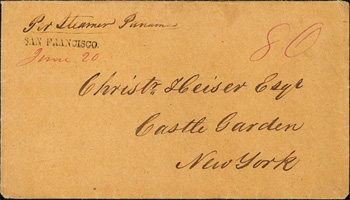 Per Steamer Panama
SAN FRANCISCO.
June 20
80
Christr. Heiser Esqr
Castle Garden
New York